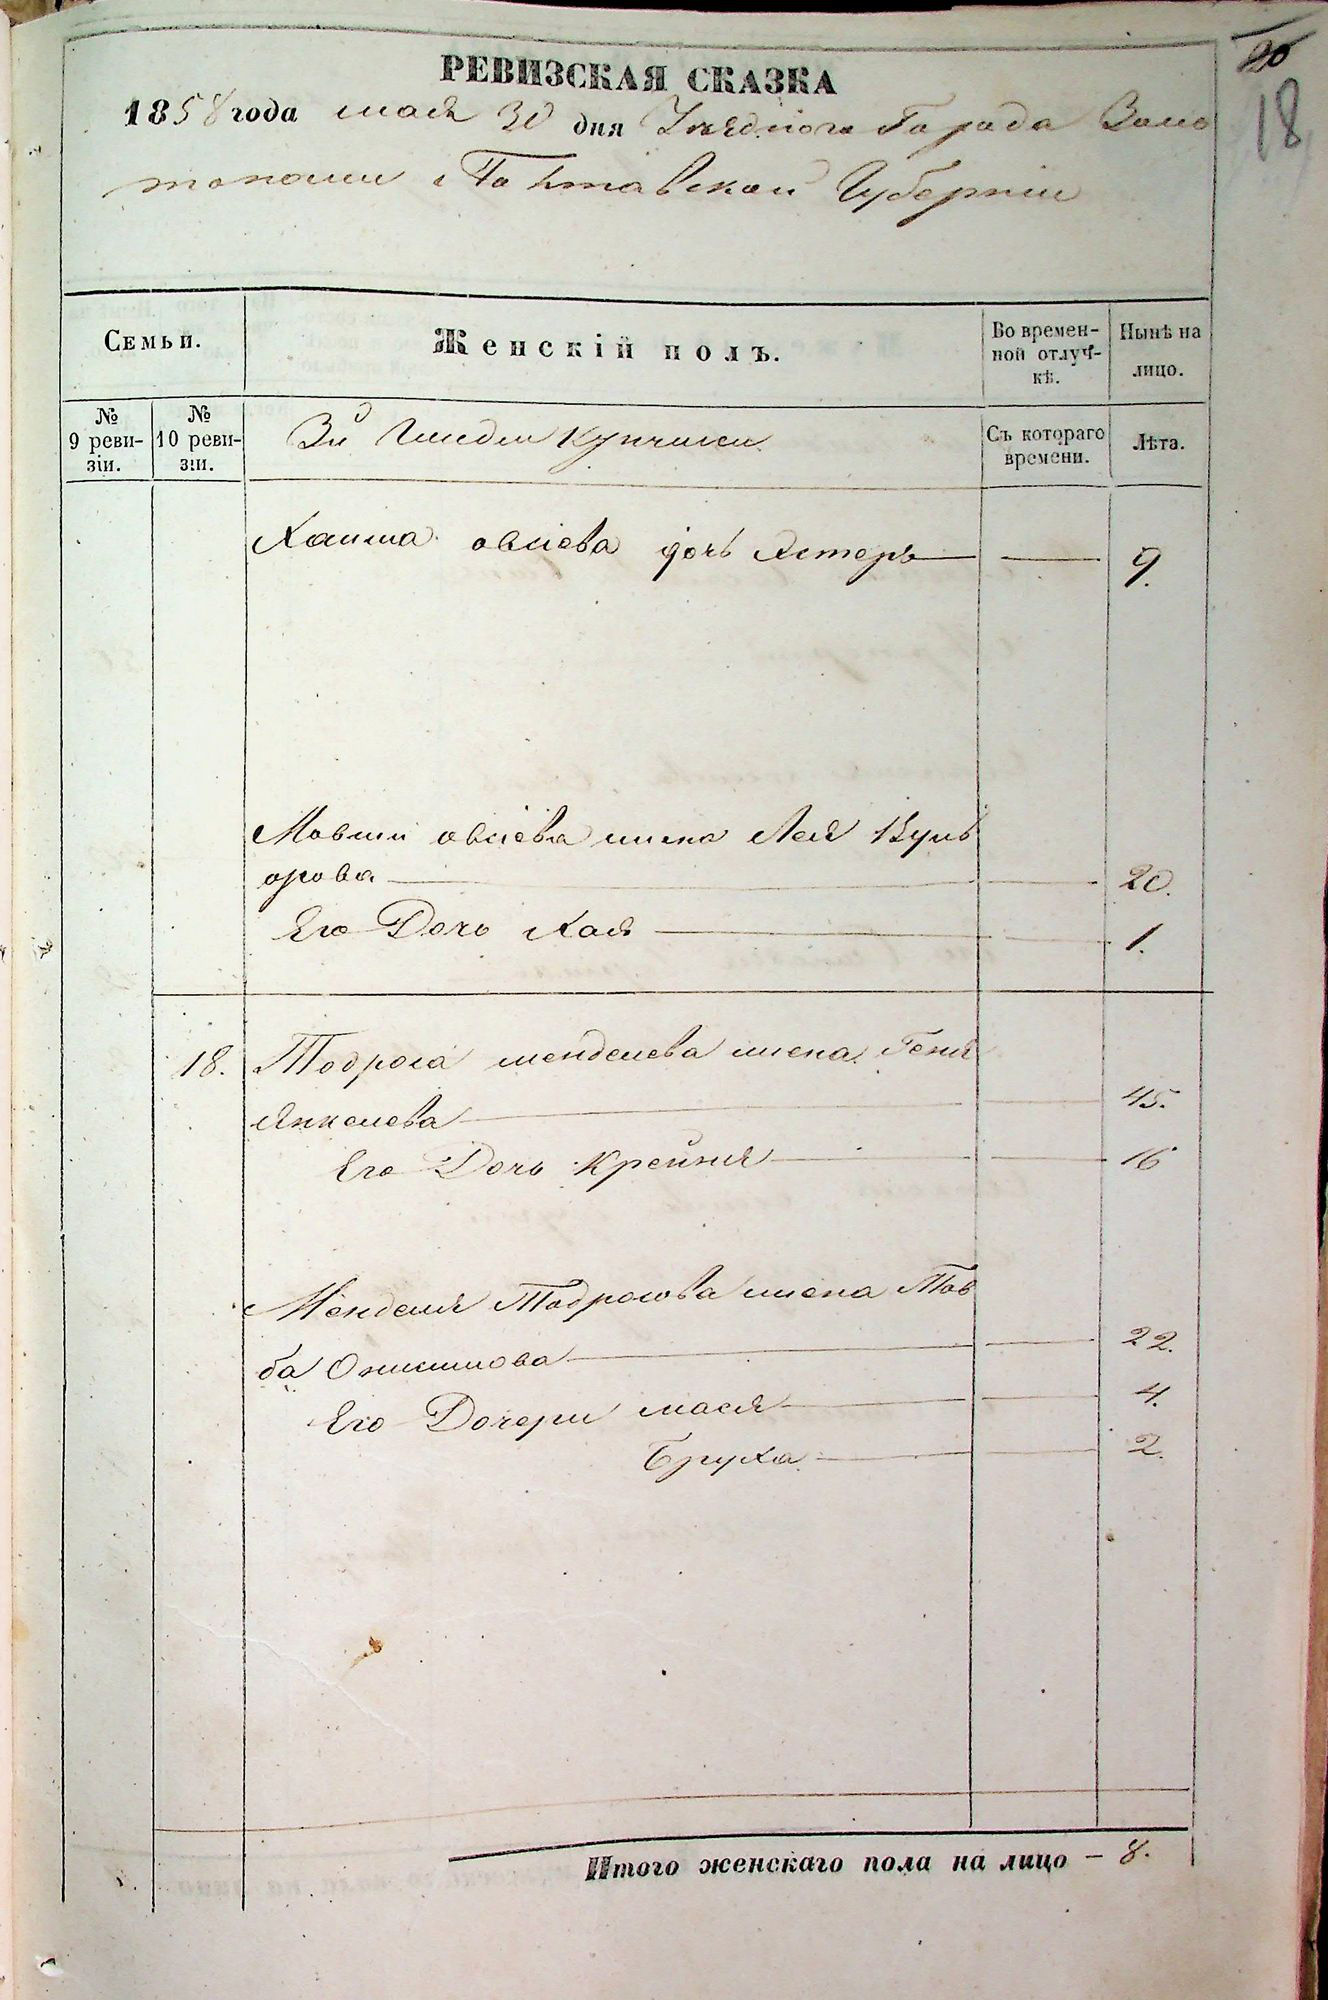 20
18
РЕВИЗСКАЯ СКАЗКА
1858 года мая 30 дня Уѣзднаго Города Золо
тоноши Полтавской Губерніи
Семьи.
Женскій полъ.
Во времен-
ной отлуч-
кѣ.
Нынѣ на
лицо.
№
9 реви-
зіи.
№
10 реви-
зіи.
3й Гилдіи Купчихи
Съ котораго
времени.
Лѣта.
Хаима овсіева дочь Естеръ — — 9.
Мовши овсіева жена Лея Вуль
фова — — 20.
Его Дочь Хая — — 1.
18. Тодроса менделева жена Геня
Янкелева — — 45.
Его Дочь Крейня — — 16
Менделя Тодросова жена Тов
ба — — 22.
Его Дочери мася — — 4.
Бруха — — 2.
Итого женскаго пола на лицо – 8.